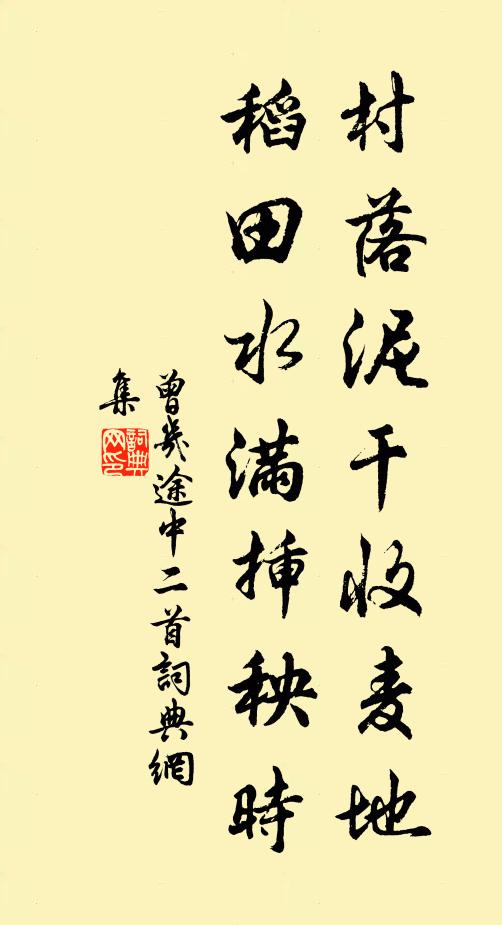 村落泥干收麦地
稻田水满挿秧時
曾幾途中二首詞典網
集
詞典
网印